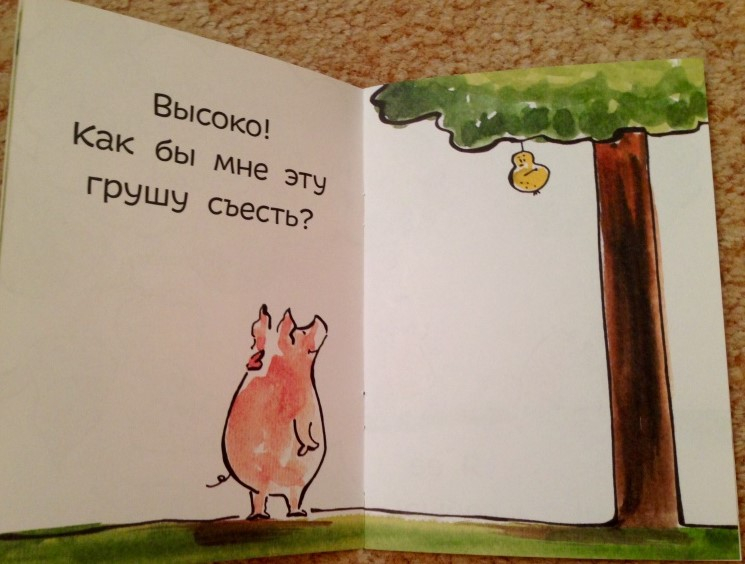 Высоко!
Как бы мне эту
грушу съесть?